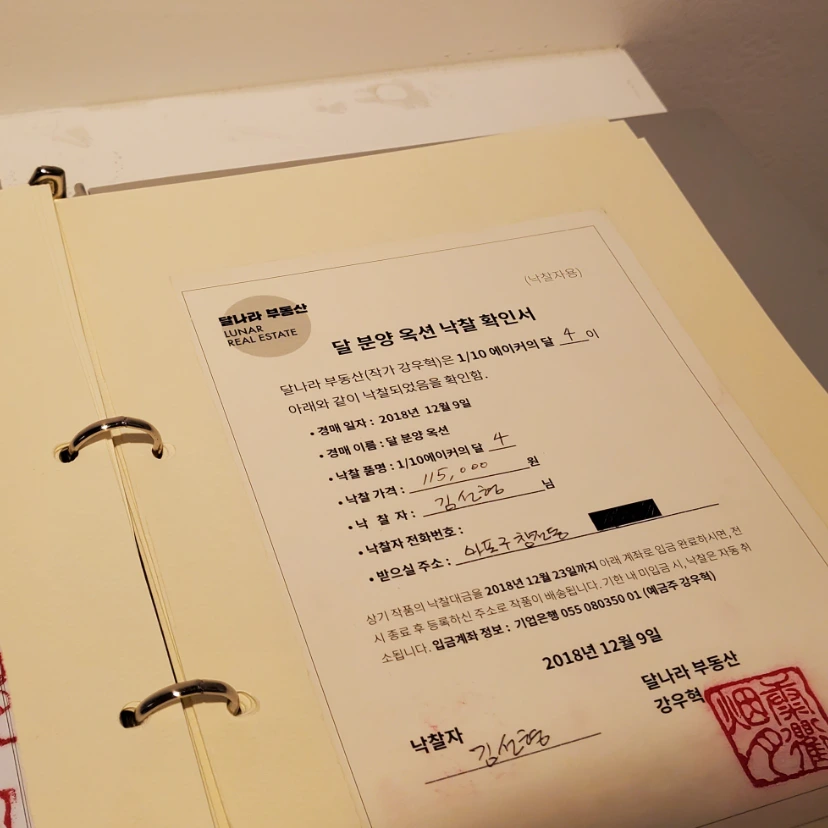 (낙찰자용)
달나라 부동산
LUNAR
REAL ESTATE
달 분양 옥션 낙찰 확인서
달나라 부동산(작가 강우혁)은 1/10 에이커의 달 4 이
아래와 같이 낙찰되었음을 확인함.
• 경매 일자 : 2018년 12월 9일
• 경매 이름 : 달 분양 옥션
• 낙찰 품명 : 1/10에이커의 달 4
• 낙찰 가격 : 115,000 원
• 낙 찰 자 : 김선형 님
• 낙찰자 전화번호 :
• 받으실 주소 : 마포구 창전동
상기 작품의 낙찰대금을 2018년 12월 23일까지 아래 계좌로 입금 완료하시면, 전
시 종료 후 등록하신 주소로 작품이 배송됩니다. 기한 내 미입금 시, 낙찰은 자동 취
소됩니다. 입금계좌 정보 : 기업은행 055 080350 01 (예금주 강우혁)
2018년 12월 9일
달나라 부동산
강우혁
낙찰자 김선형